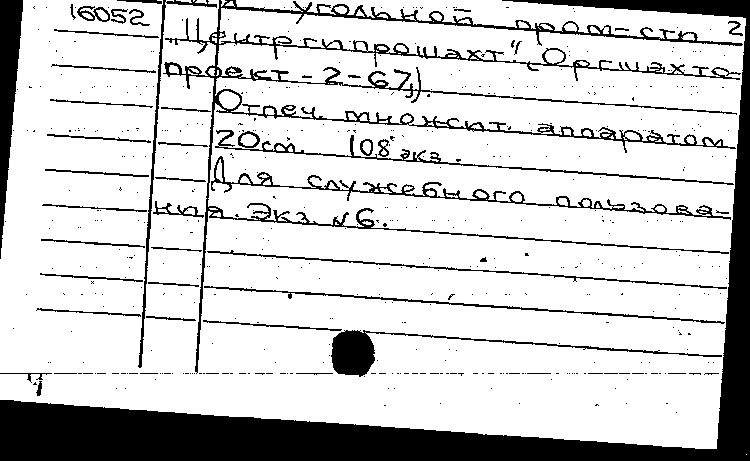 16052 ния угольной пром-сти 2
"Центргипрошахт". (Оргшахто-
проект-2-67).
Отпеч. множит. аппаратом
20см. 108 экз.
Для служебного пользова-
ния. Экз. №6.